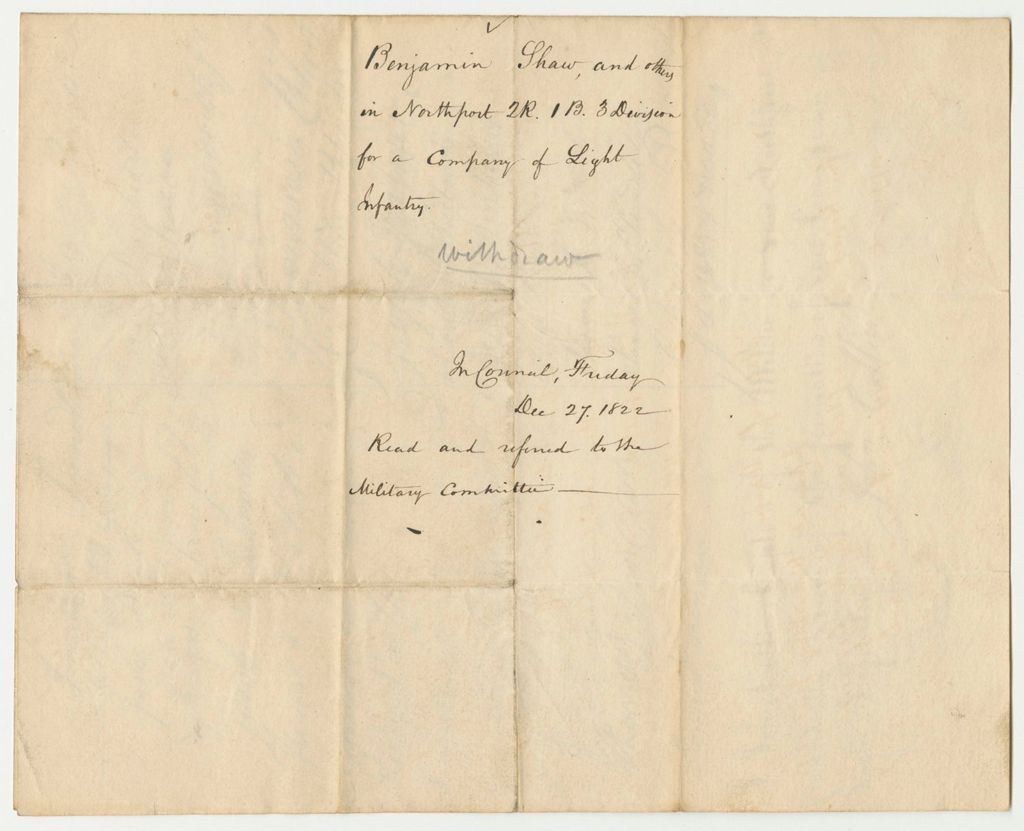 Benjamin Shaw, and others
in Northport 2R. 1B. 3 Division
for a Company of Light
Infantry.
Withdraw
In Council, Friday
Dec 27. 1822
Read and referred to the
Military Committee